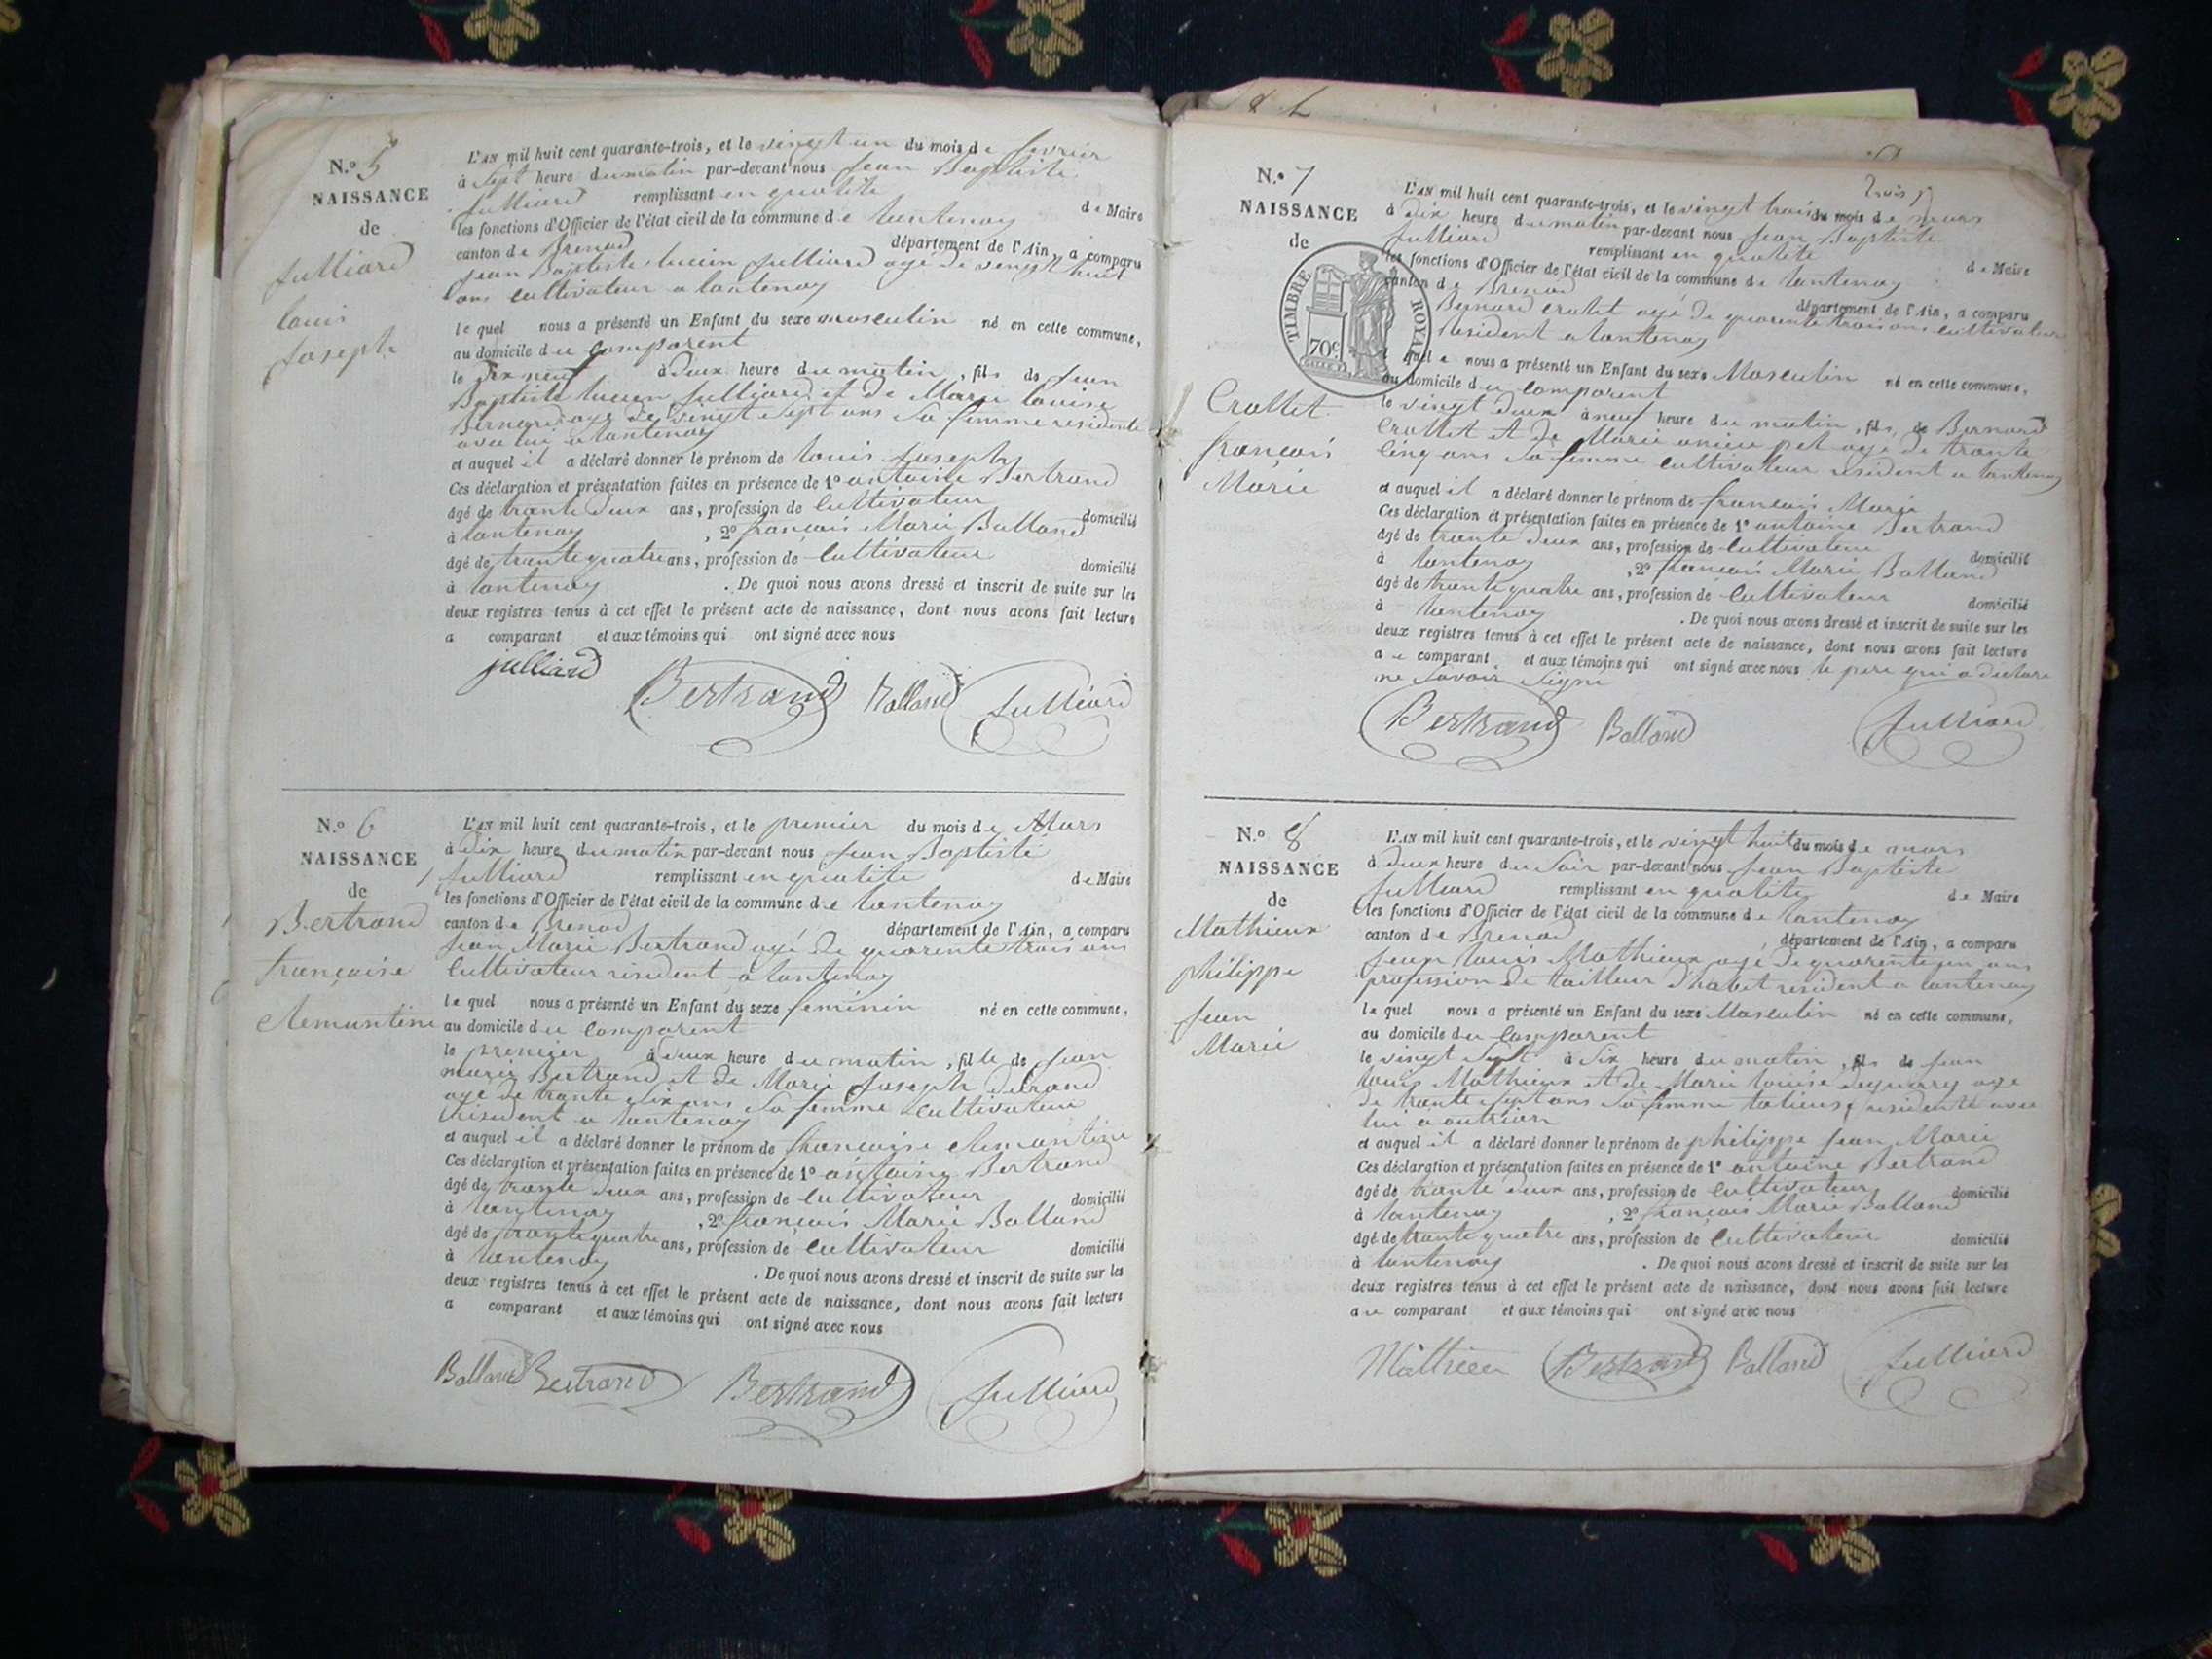 N.o 5
NAISSANCE
de
Julliard
louis
Joseph
L'AN mil huit cent quarante-trois, et le vingt un du mois de fevrier
à sept heure du matin par-devant nous jean Baptiste
Julliard remplissant en qualité de Maire
les fonctions d'Officier de l'état civil de la commune de lantenay
canton de Brenod département de l'Ain, a comparu
jean Baptiste lucien Julliard agé de vingt huit
ans cultivateur a lantenay
le quel nous a présenté un Enfant du sexe masculin né en cette commune,
au domicile du comparent
le dix neuf à deux heure du matin, fils de jean
Baptiste lucien Julliard et de Marie louise
Bernard age de vingt sept ans sa femme residente
avec lui a lantenay
et auquel il a déclaré donner le prénom de louis Joseph
Ces déclaration et présentation faites en présence de 1º antoine Bertrand
âgé de trante deux ans, profession de cultivateur domicilié
à lantenay, 2º françois Marie Balland
âgé de trante quatre ans, profession de cultivateur domicilié
à lantenay. De quoi nous avons dressé et inscrit de suite sur les
deux registres tenus à cet effet le présent acte de naissance, dont nous avons fait lecture
a comparant et aux témoins qui ont signé avec nous
julliard Bertrand Balland Julliard
N.o 6
NAISSANCE
de
Bertrand
françoise
clemantine
L'AN mil huit cent quarante-trois, et le premier du mois de Mars
à dix heure du matin par-devant nous jean Baptiste
Julliard remplissant en qualite de Maire
les fonctions d'Officier de l'état civil de la commune de lantenay
canton de Brenod département de l'Ain, a comparu
jean Marie Bertrand agé de quarente trois ans
cultivateur résident a lantenay
le quel nous a présenté un Enfant du sexe feminin né en cette commune,
au domicile du comparent
le premier à deux heure du matin, fille de jean
marie Bertrand et de Marie Joseph
age de trante six ans sa femme cultivateur
résident a lantenay
et auquel il a déclaré donner le prénom de françoise clemantine
Ces déclaration et présentation faites en présence de 1º antoine Bertrand
âgé de trante deux ans, profession de cultivateur domicilié
à lantenay, 2º françois Marie Balland
âgé de trante quatre ans, profession de cultivateur domicilié
à lantenay. De quoi nous avons dressé et inscrit de suite sur les
deux registres tenus à cet effet le présent acte de naissance, dont nous avons fait lecture
a comparant et aux témoins qui ont signé avec nous
Balland Bertrand Bertrand Julliard
N.o 7
NAISSANCE
de
TIMBRE ROYAL
70c
Crottet
françois
Marie
trois
L'AN mil huit cent quarante-trois, et le vingt trois du mois de mars
à dix heure du matin par-devant nous jean Baptiste
Julliard remplissant en qualité de Maire
les fonctions d'Officier de l'état civil de la commune de lantenay
canton de Brenod département de l'Ain, a comparu
Bernard crotet agé de quarente trois ans cultivateur
résident a lantenay
quel nous a présenté un Enfant du sexe Masculin né en cette commune,
au domicile du comparent
le vingt deux à neuf heure du matin, fils de Bernard
Crottet et de Marie age de trante
cinq ans sa femme cultivateur résident a lantenay
et auquel il a déclaré donner le prénom de françois Marie
Ces déclaration et présentation faites en présence de 1º antoine Bertrand
âgé de trante deux ans, profession de cultivateur domicilié
à lantenay, 2º françois Marie Balland
âgé de trante quatre ans, profession de cultivateur domicilié
à lantenay. De quoi nous avons dressé et inscrit de suite sur les
deux registres tenus à cet effet le présent acte de naissance, dont nous avons fait lecture
au comparant et aux témoins qui ont signé avec nous le pere qui a déclaré
ne savoir signé
Bertrand Balland Julliard
N.o 8
NAISSANCE
de
Mathieux
philippe
jean
Marie
L'AN mil huit cent quarante-trois, et le vingt huit du mois de mars
à deux heure du soir par-devant nous jean Baptiste
Julliard remplissant en qualité de Maire
les fonctions d'Officier de l'état civil de la commune de lantenay
canton de Brenod département de l'Ain, a comparu
jean louis Mathieux agé de quarente un ans
profession de tailleur d'habit resident a lantenay
le quel nous a présenté un Enfant du sexe Masculin né en cette commune,
au domicile du comparent
le vingt sept à six heure du matin, fils de jean
louis Mathieux et de Marie louise age
de trante sept ans sa femme residente avec
lui
et auquel il a déclaré donner le prénom de philippe jean Marie
Ces déclaration et présentation faites en présence de 1º antoine Bertrand
âgé de trante deux ans, profession de cultivateur domicilié
à lantenay, 2º françois Marie Balland
âgé de trante quatre ans, profession de cultivateur domicilié
à lantenay. De quoi nous avons dressé et inscrit de suite sur les
deux registres tenus à cet effet le présent acte de naissance, dont nous avons fait lecture
au comparant et aux témoins qui ont signé avec nous
Mathieu Bertrand Balland Julliard